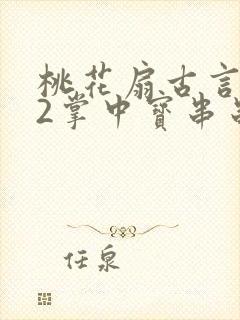 桃花扇古言
2掌中寳串
任泉